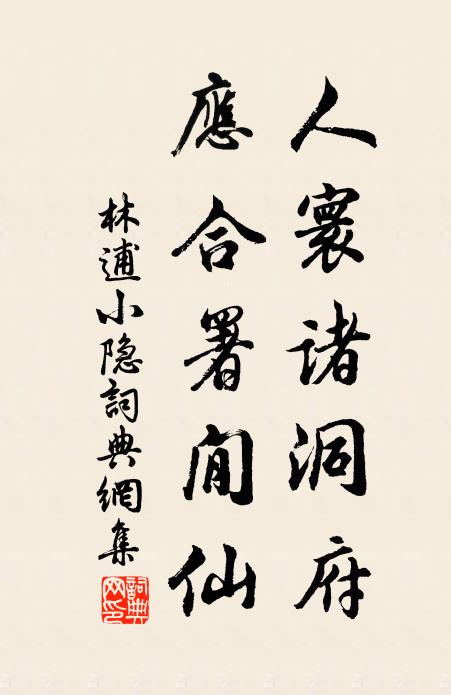 人寰诸洞府
應合署閒仙
林逋小隐詞典網集
詞典网印